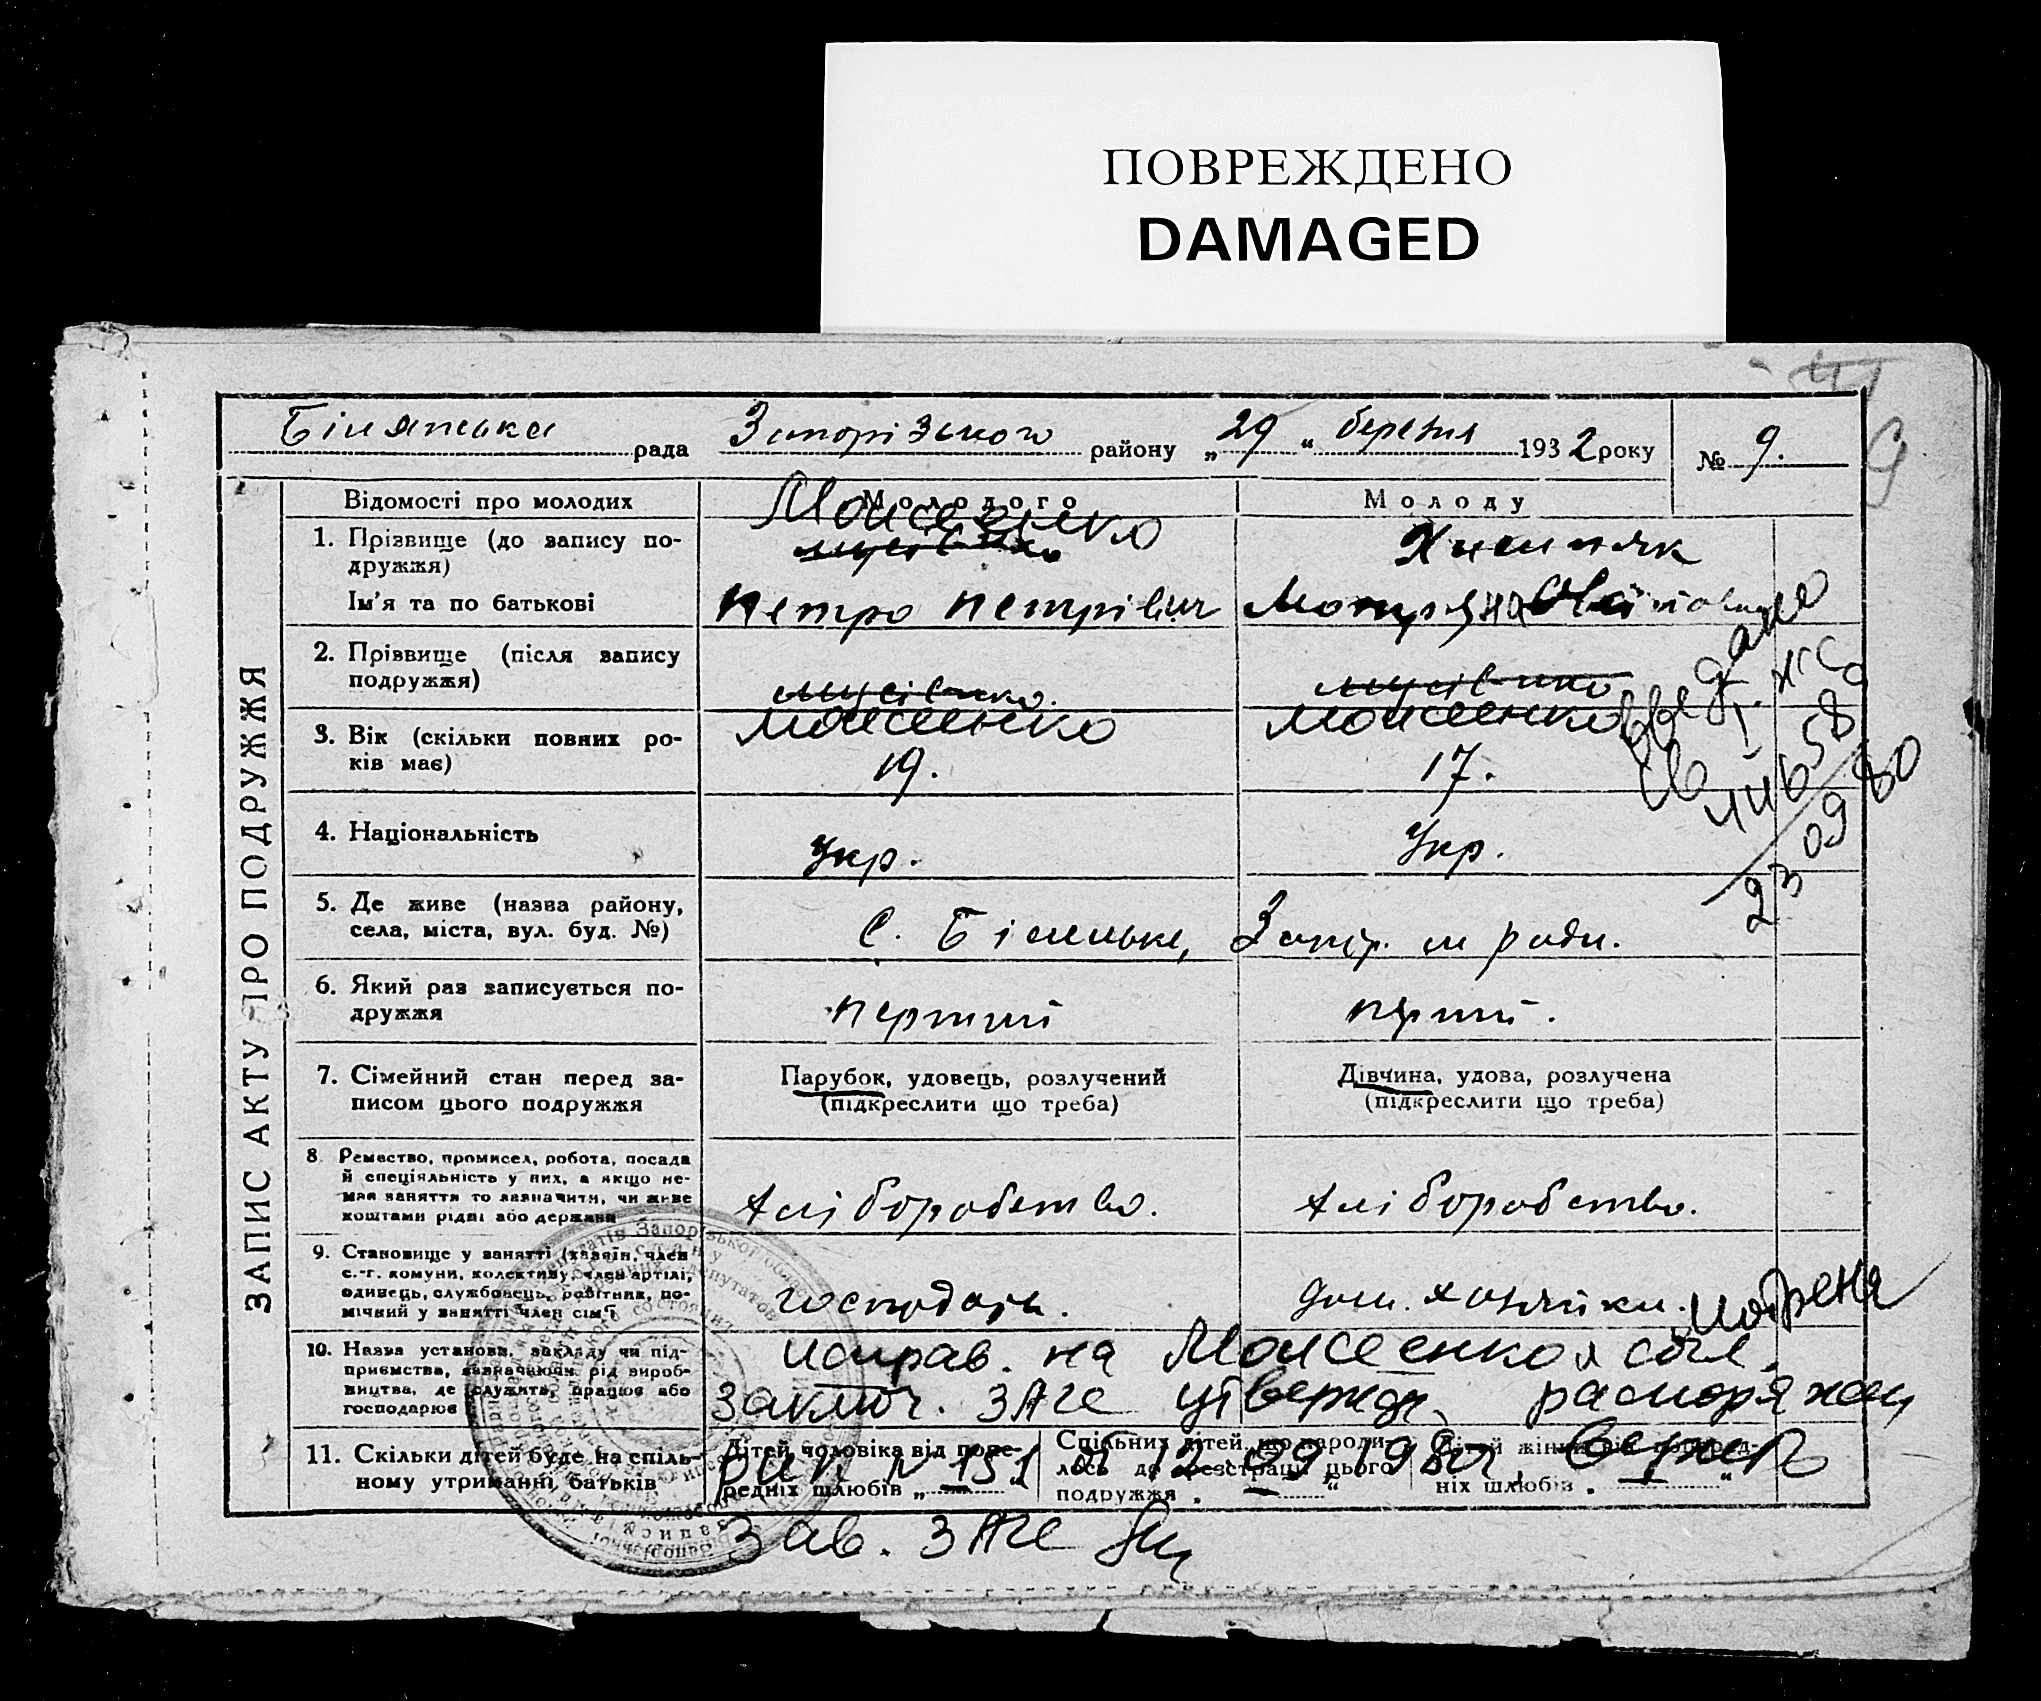 ПОВРЕЖДЕНО
DAMAGED
Білянська рада Запорізького району „29“ березня 1932 року № 9.
9
ЗАПИС АКТУ ПРО ПОДРУЖЖЯ
Відомості про молодих
Молодого
Молоду
1. Прізвище (до запису по-
дружжя)
Моисеенко
Мусієнко
Ім'я та по батькові
Петро Петрович
2. Прізвище (після запису
подружжя)
Мусієнко.
Мусієнко
Моисеенко
Моисеенко
3. Вік (скільки повних ро-
ків має)
19.
17.
4. Національність
Укр.
Укр.
5. Де живе (назва району,
села, міста, вул. буд. №)
С. Біленьке,
6. Який раз записується по-
дружжя
перший
перший.
7. Сімейний стан перед за-
писом цього подружжя
Парубок, удовець, розлучений
(підкреслити що треба)
Дівчина, удова, розлучена
(підкреслити що треба)
8. Ремество, промисел, робота, посада
й спеціяльність у них, а якщо не-
має заняття то зазначити, чи живе
коштами рідні або держави
хліборобство.
хліборобство.
9. Становище у занятті (хазяїн, член
с.-г. комуни, колективу, член артілі,
одинець, службовець, робітник, по-
мічний у занятті член сім'ї
господарь.
дом. хозяйки.
10. Назва установи, закладу чи під-
приємства, зазначаючи рід вироб-
ництва, де служить, працює або
господарює
исправ. на Моисеенко
заключ. ЗАГС утвержд.
11. Скільки дітей буде на спіль-
ному утриманні батьків
Дітей чоловіка від попе-
редніх шлюбів „—“
Спільних дітей, що народи-
лось до реєстрації цього
подружжя „—“
Дітей жінки від поперед-
ніх шлюбів „—“
№ 151 от 12.09 1980г.
Зав. ЗАГС
23 09 80